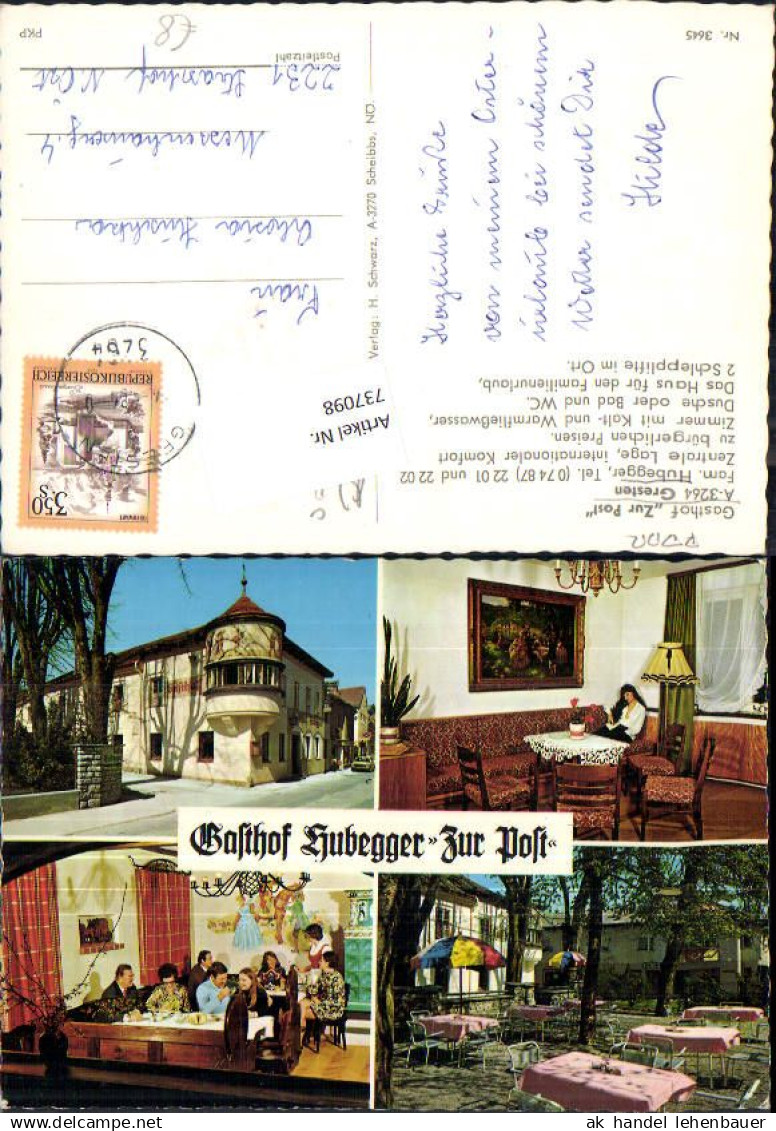 Gasthof „Zur Post"
A-3264 Gresten
Fam. Hubegger, Tel. (0 74 87) 22 01 und 22 02
Zentrale Lage, internationaler Komfort
zu bürgerlichen Preisen.
Zimmer mit Kalt- und Warmfließwasser,
Dusche oder Bad und WC.
Das Haus für den Familienurlaub,
2 Schlepplifte im Ort.
Herzliche Grüße
von meinem Oster-
urlaub bei schönem
Wetter sendet Dir
Hilde
Nr. 3645
Verlag: H. Schwarz, A-3270 Scheibbs, NÖ.
Artikel Nr.
737098
REPUBLIK ÖSTERREICH
3.50
S
Frau
Aloisia
2231
Postleitzahl
PKP
€8
Gasthof Hubegger »Zur Post«
ak handel lehenbauer